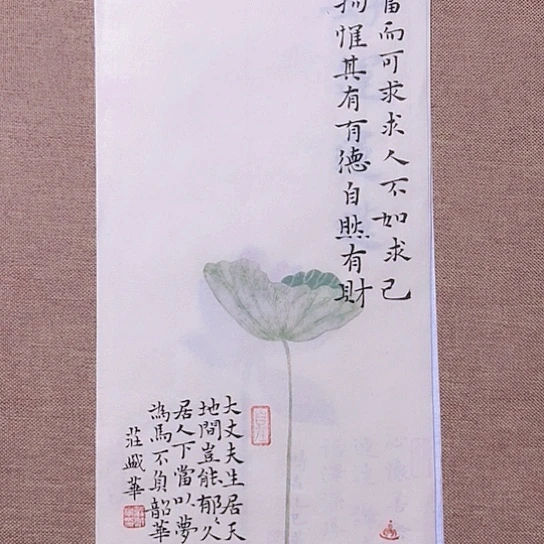 富而可求求人不如求己
惟其有有德自然有財
大丈夫生居天
地間豈能郁々久
居人下當以夢
為馬不負韶華
莊盛華